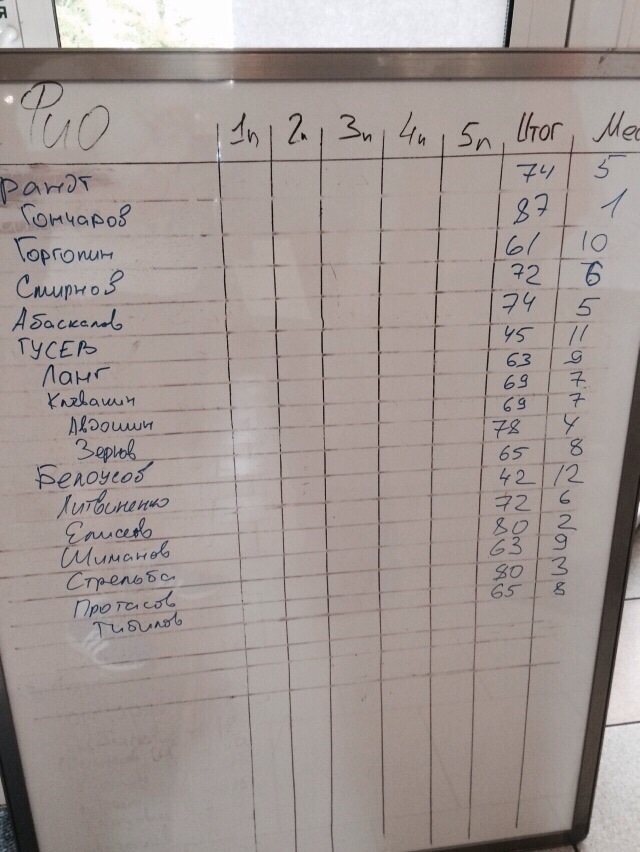 Я
ФИО 1п 2п 3п 4п 5п Итог Мес
рандт 74 5
Гончаров 87 1
Горгопин 61 10
Смирнов 72 6
Абаскалов 74 5
ГУСЕВ 45 11
Ланг 63 9
Клевакин 69 7
Авдошин 69 7
78 4
Белоусов 65 8
Литвиненко 42 12
Елисеев 72 6
Шиманов 80 2
Стрельба 63 9
Протасов 80 3
Тибилов 65 8